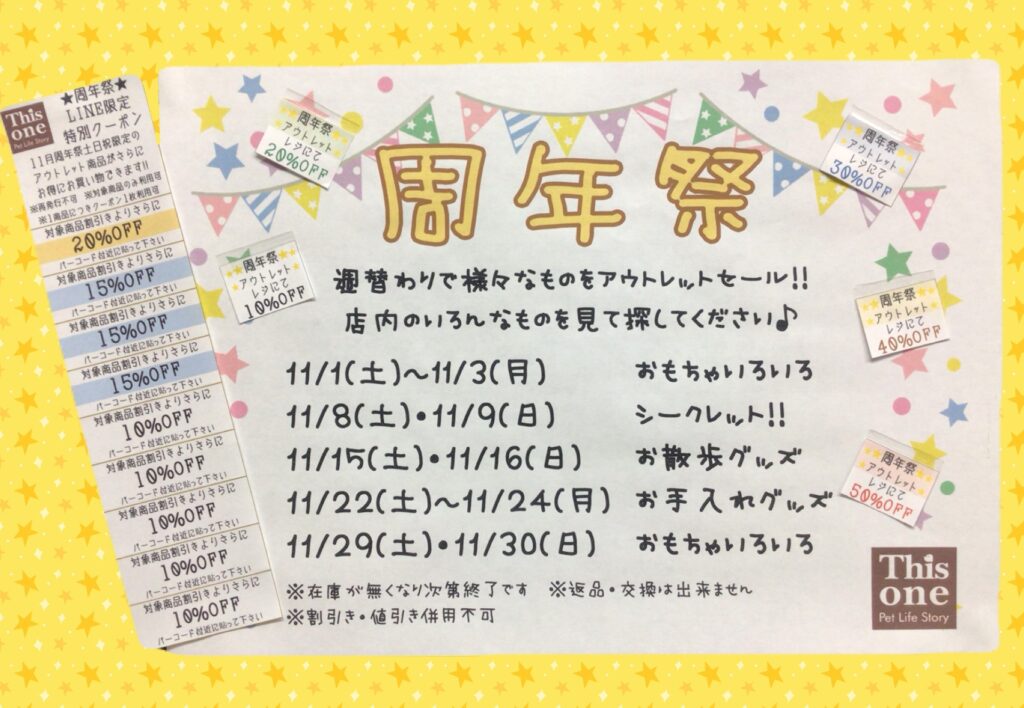 This
one
Pet Life Story
★周年祭★
LINE限定
特別クーポン
11月周年祭土日祝限定の
アウトレット商品がさらに
お得にお買い物できます!!
※再発行不可 ※対象商品のみ利用可
※1商品につきクーポン1枚利用可
対象商品割引きよりさらに
20%OFF
バーコード付近に貼って下さい
対象商品割引きよりさらに
15%OFF
バーコード付近に貼って下さい
対象商品割引きよりさらに
15%OFF
バーコード付近に貼って下さい
対象商品割引きよりさらに
15%OFF
バーコード付近に貼って下さい
対象商品割引きよりさらに
10%OFF
バーコード付近に貼って下さい
対象商品割引きよりさらに
10%OFF
バーコード付近に貼って下さい
対象商品割引きよりさらに
10%OFF
バーコード付近に貼って下さい
対象商品割引きよりさらに
10%OFF
バーコード付近に貼って下さい
対象商品割引きよりさらに
10%OFF
バーコード付近に貼って下さい
周年祭
アウトレット
レジにて
20%OFF
周年祭
アウトレット
レジにて
30%OFF
周年祭
周年祭
アウトレット
レジにて
10%OFF
周年祭
アウトレット
レジにて
40%OFF
週替わりで様々なものをアウトレットセール!!
店内のいろんなものを見て探してください♪
11/1(土)～11/3(月) おもちゃいろいろ
11/8(土)・11/9(日) シークレット!!
11/15(土)・11/16(日) お散歩グッズ
11/22(土)～11/24(月) お手入れグッズ
11/29(土)・11/30(日) おもちゃいろいろ
周年祭
アウトレット
レジにて
50%OFF
※在庫が無くなり次第終了です ※返品・交換は出来ません
※割引き・値引き併用不可
This
one
Pet Life Story